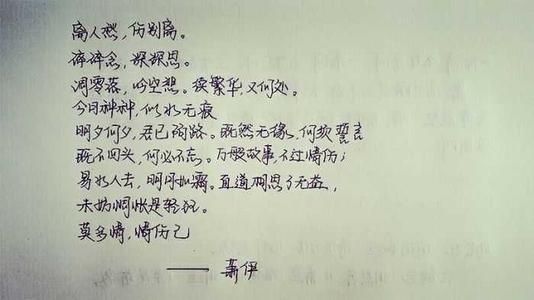 离人愁，伤别离。
碎碎念，深深思。
凋零落，吟空想。续繁华，又何处。
今日种种，似水无痕
明夕何夕，君已陌路。既然无缘，何须誓言
既不回头，何必不忘。万般故事，不过情伤；
易水人去，明月如霜。直道相思了无益，
未妨惆怅是轻狂。
莫多情，情伤己
—— 新伊